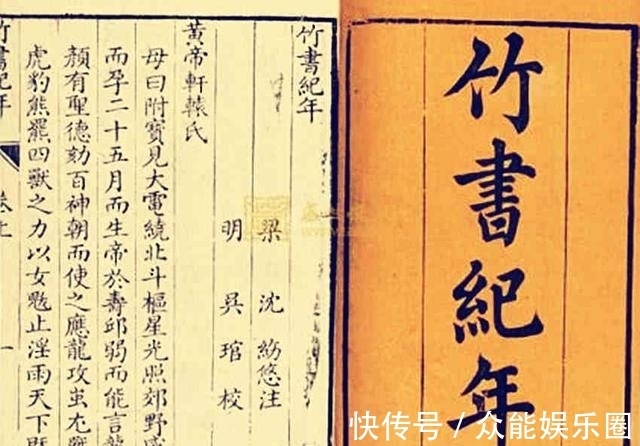 竹書紀年
竹書紀年
梁 沈 紛悠注
明 吳 琯 校
黃帝軒轅氏
母曰附寶見大電繞北斗樞星光照郊野感
而孕二十五月而生帝於壽邱弱而能言龍
顏有聖德劾百神朝而使之應龍攻蚩尤戰
虎豹熊羆四獸之力以女魃止淫雨天下旣
竹書紀年 卷上 一
快传号 / 众能娱乐圈